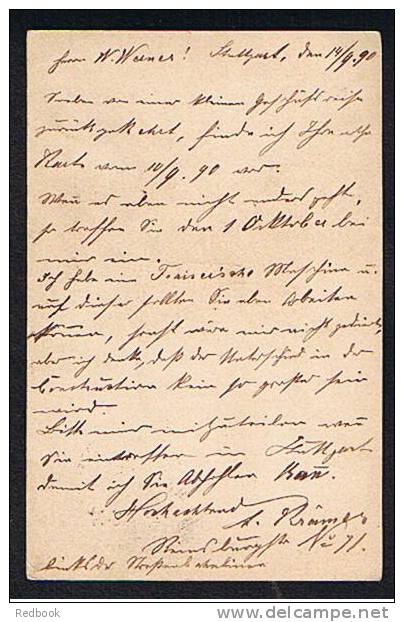 Herrn W. Werner! Stuttgart, den 14/9. 90
Soeben von einer kleinen Geschäftsreise
zurückgekehrt, finde ich Ihre
Karte vom 10/9. 90 vor.
Wenn es eben nicht anders geht,
so treffen Sie den 1 Oktober bei
mir ein.
Ich habe eine Maschine u.
auf dieser sollten Sie eben Arbeiten
können, wäre mir nicht gedient,
aber ich denke, daß der Unterschied in der
Construction kein so großer sein
wird.
Bitte mir mitzuteilen wann
Sie eintreffen in Stuttgart
damit ich Sie Abhohlen kann.
Hochachtend
A. Krämer
No 71.
links der
Redbook
http://www.delcampe.net